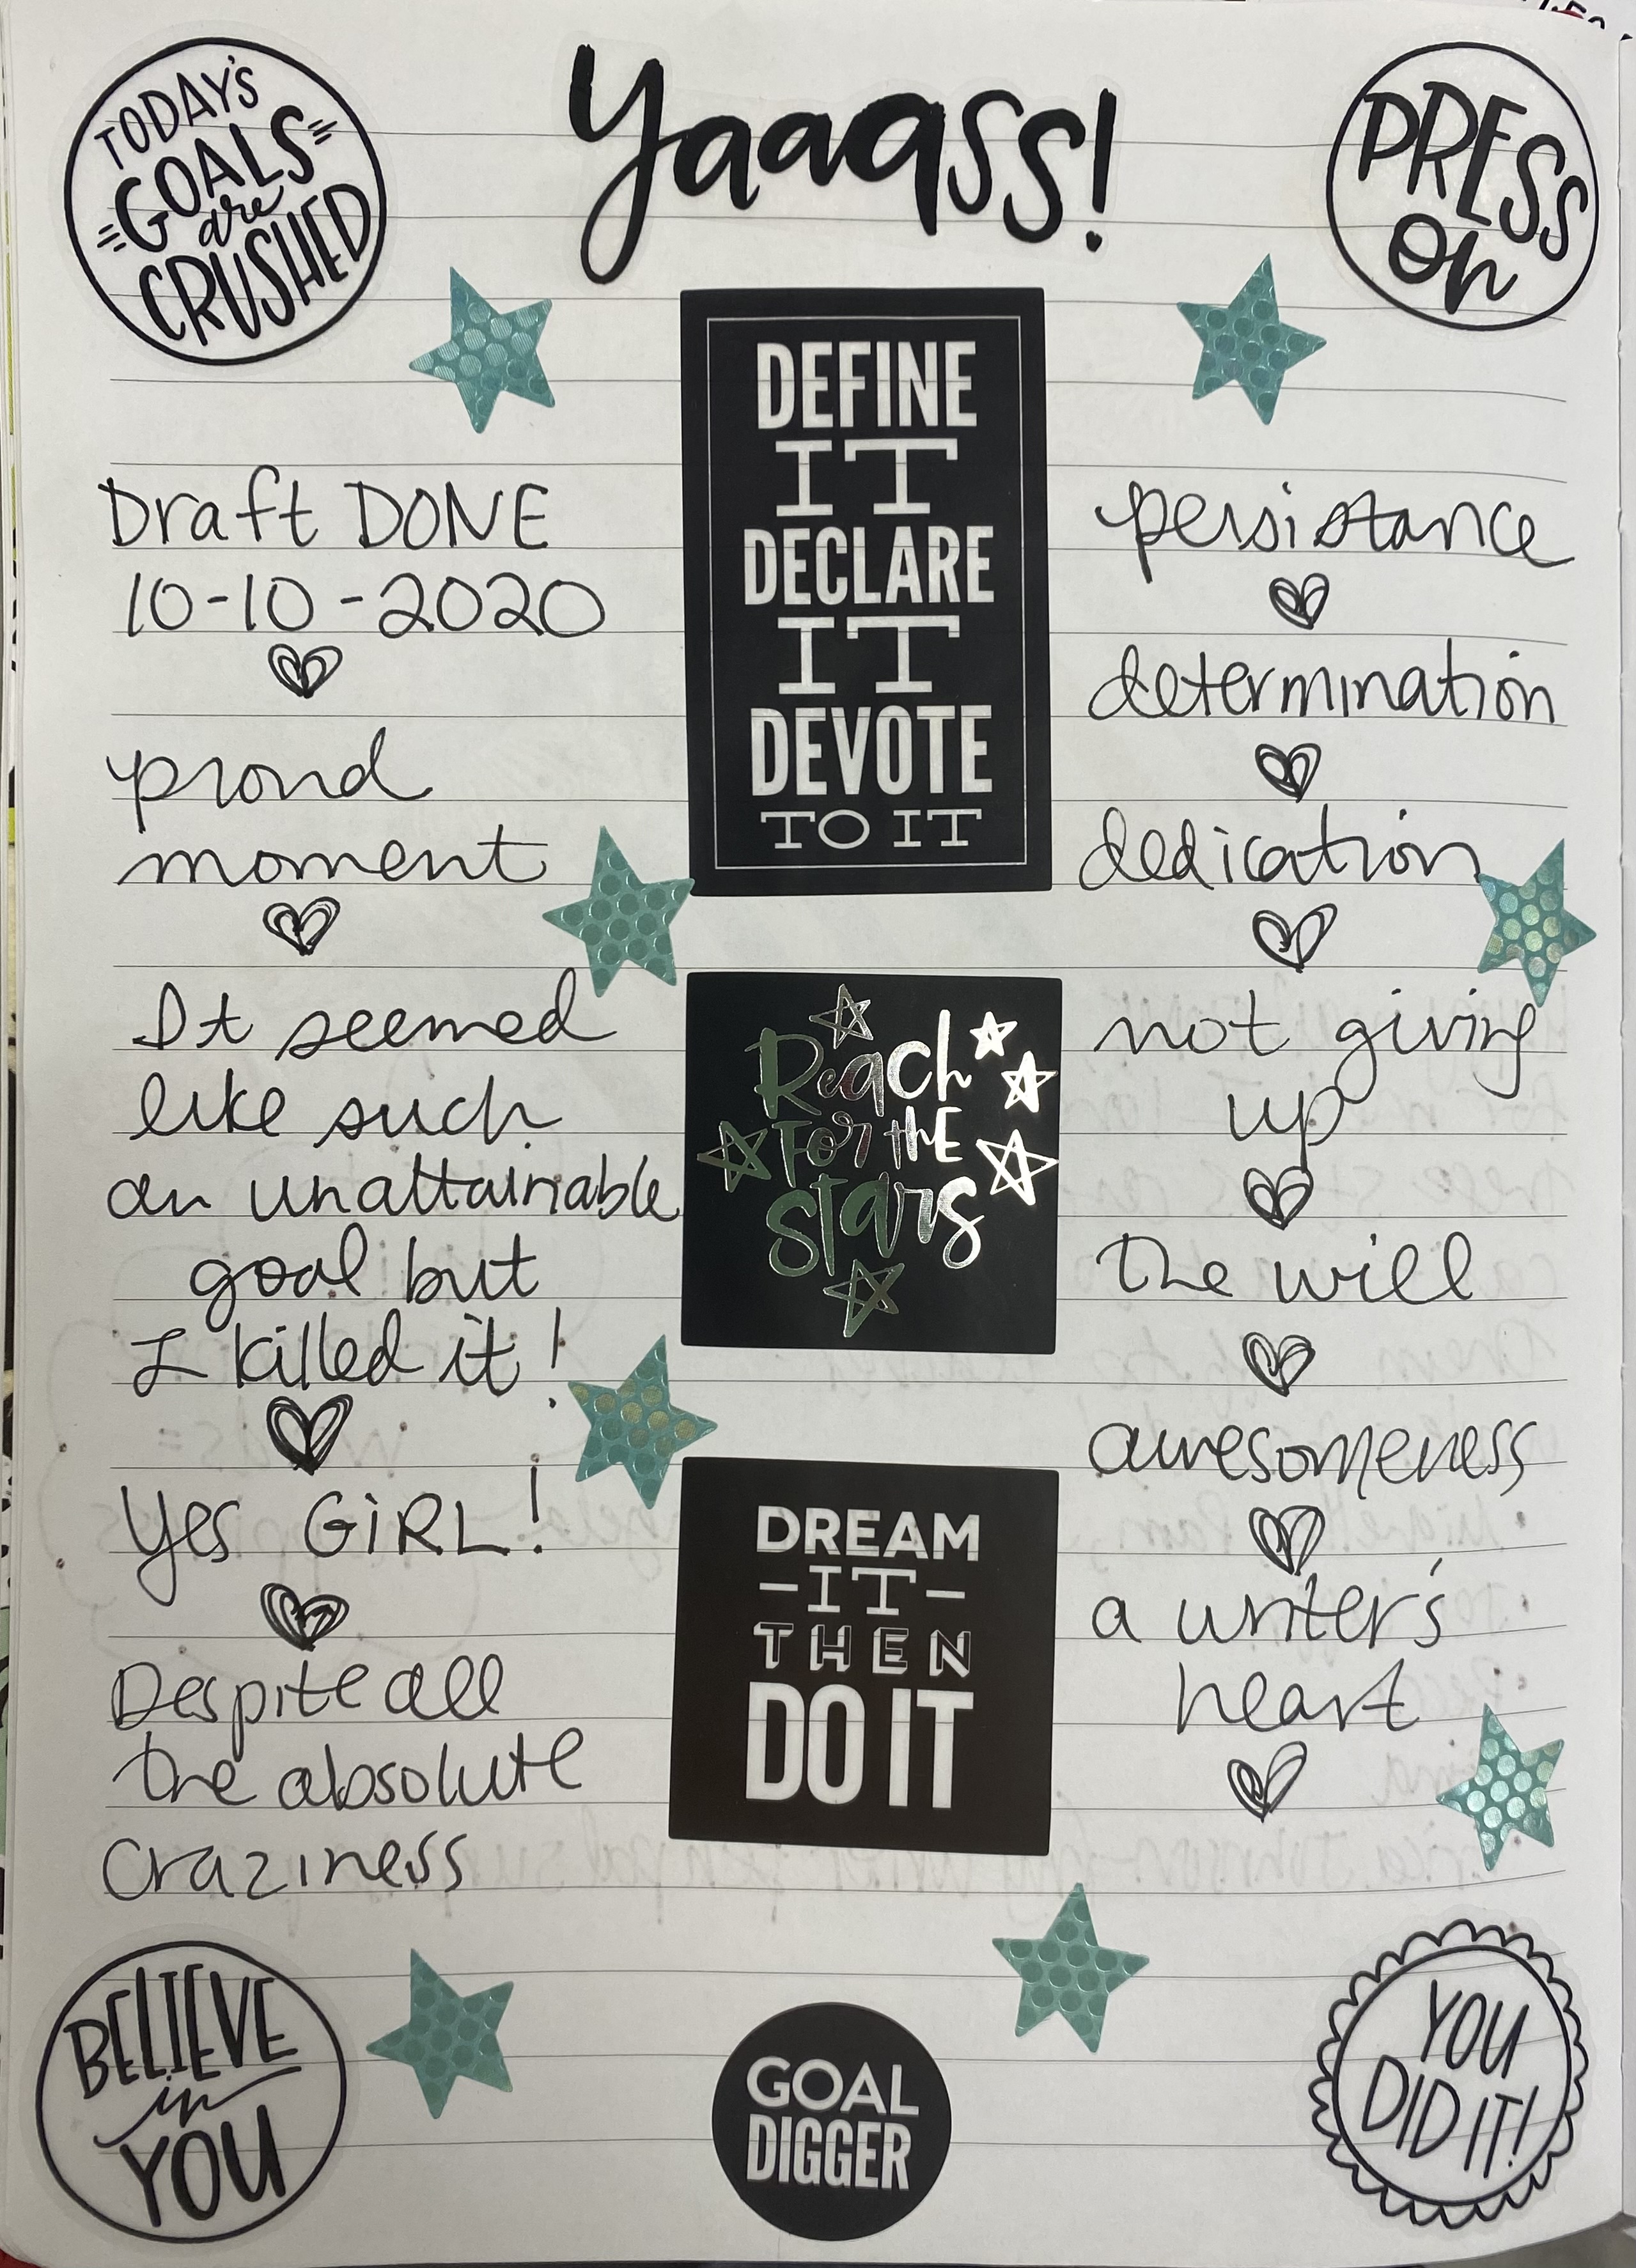 TODAY'S
GOALS
are
CRUSHED
Yaaass!
PRESS
On
Draft DONE
10-10-2020
proud
moment
It seemed
like such
an unattainable
goal but
I killed it!
Yes GiRL!
Despite all
the absolute
craziness
DEFINE
IT
DECLARE
IT
DEVOTE
TO IT
Reach
for the
stars
DREAM
-IT-
THEN
DO IT
persistance
determination
dedication
not giving
up
the will
awesomeness
a writer's
heart
BELIEVE
in
YOU
GOAL
DIGGER
YOU
DID IT!